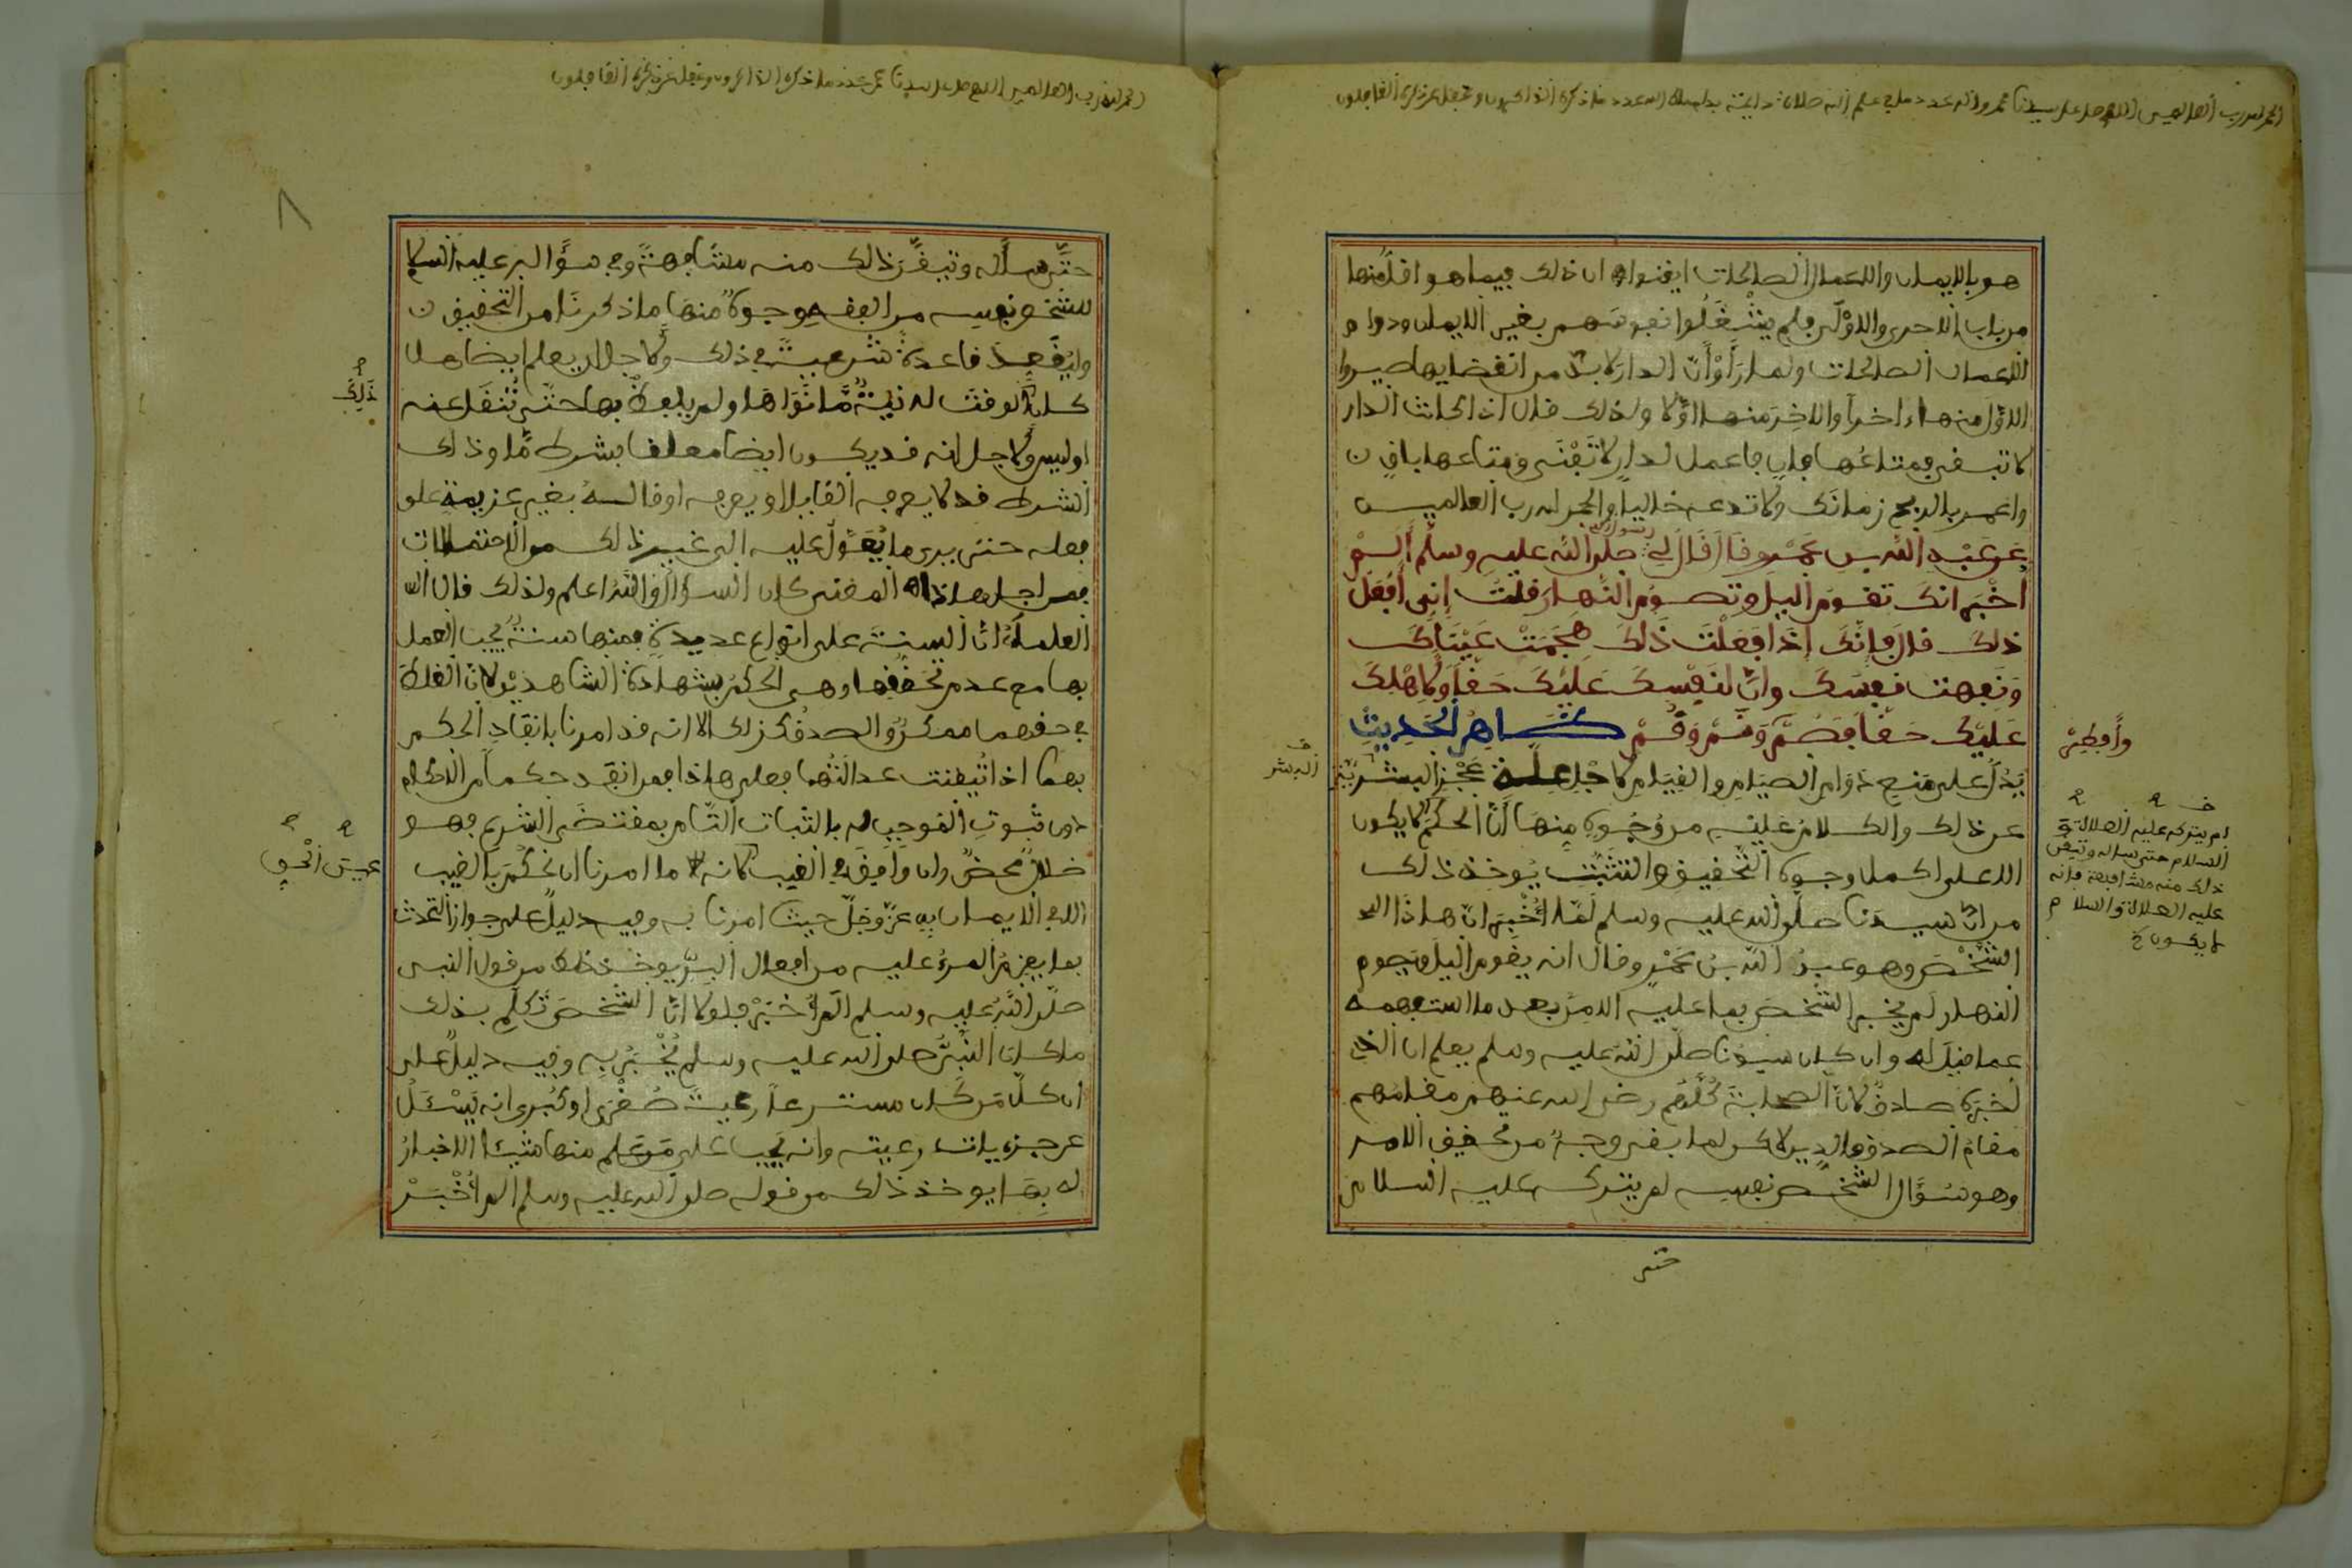 الحمد لله رب العالمين اللهم صل على سيدنا محمد وآله عدد ما في علم الله صلاة دائمة بدوام ملك الله عدد ما ذكره الذاكرون وغفل عن ذكره الغافلون
هو بالايمان والاعمال الصالحات ايقنوا ان ذلك فيما هو اقل منها
من باب الاحرى والاولى فلم يشغلوا نفوسهم بغير الايمان ودوام
الاعمال الصالحات ولما رأوا أن الدار لا بد من انقضايها صيروا
الاول منها ءاخرا والاخر منها اولا ولذلك قال اذا كانت الدار
لا تبقى فمتاعها فان فاعمل لدار لا تفنى ومتاعها باق ن
واعمر بالربح زمانك ولا تدعه خاليا والحمد لله رب العالمين
عن عبد الله بن عمرو قال قال لي رسول الله صلى الله عليه وسلم ألم
أخبر انك تقوم اليل وتصوم النهار قلت إني أفعل
ذلك قال فإنك إذا فعلت ذلك هجمت عيناك
ونفهت نفسك وإن لنفسك عليك حقا ولأهلك
عليك حقا فصم ونم وقم ظاهر الحديث
وأفطر
يدل على منع دوام الصيام والقيام لاجل علة عجز البشرية
البشر
عن ذلك والكلام عليه من وجوه منها أن الحكم لا يكون
الا على اكمل وجوه التحقيق والتثبت يوخذ ذلك
من ان سيدنا صلى الله عليه وسلم لما أخبر ان هاذا
الشخص وهو عبد الله بن عمرو قال انه يقوم اليل ويصوم
النهار لم يخبر الشخص بما عليه الامر بعد ما استفهمه
عما قيل له وان كان سيدنا صلى الله عليه وسلم يعلم ان الذي
أخبره صادق لان الصحابة كلهم رضي الله عنهم مقامهم
مقام الصدق والدين لاكن لما بقي وجه من تحقيق الامر
وهو سؤال الشخص نفسه لم يتركه عليه السلام
لم يتركه عليه الصلاة و
السلام حتى ساله وتيقن
ذلك منه مشافهة فإنه
عليه الصلاة والسلام
لا يكون
حتى
الحمد لله رب العالمين اللهم صل على سيدنا محمد عدد ما ذكره الذاكرون وغفل عن ذكره الغافلون
٨
حتى سأله وتيقن ذلك منه مشافهة وفي سؤاله عليه السلام
للشخص نفسه من الفقه وجوه منها ما ذكرنا من التحقيق ن
وليقعد قاعدة شرعية في ذلك ولأجل ان يعلم ايضا هل
ذلك
كان لوقت له نية ما نواها ولم يلفظ بها حتى تنقل عنه
او ليس ولاجل انه قد يكون ايضا معلقا بشرط ما وذلك
الشرط قد لا يعرفه القايل او يعرفه او قاله بغير عزيمة على
فعله حتى يرى ما يعول عليه الى غير ذلك من الاحتمالات
فمن اجل هاذا المعنى كان السؤال والله اعلم ولذلك قال
العلماء ان السنة على انواع عديدة فمنها سنة يجب العمل
بها مع عدم تحقيقها وهي الحكم بشهادة الشاهدين لان الغلط
في حقهما ممكن والصدق كذلك الا انه قد امرنا بانفاد الحكم
بهما اذا تيقنت عدالتهما فعلى هاذا فمن انفد حكما من الاحكام
دون ثبوت الموجب له بالثبات التام بمقتضى الشرع فهو
ضلال محض وان وافق في الغيب لانه ما امرنا ان نحكم بالغيب
عين الحق
الا في الايمان به عز وجل حيث امرنا به وفيه دليل على جواز التحدث
بما يعزم المرء عليه من افعال البر يوخذ ذلك من قول النبي
صلى الله عليه وسلم ألم أخبر فلولا ان الشخص تكلم بذلك
ما كان النبي صلى الله عليه وسلم يخبر به وفيه دليل على
أن كل من كان مسترعا رعية صغرى او كبرى انه يسئل
عن جزييات رعيته وانه يجب على من علم منها شيئا الاخبار
له بها يوخذ ذلك من قوله صلى الله عليه وسلم ألم أخبر